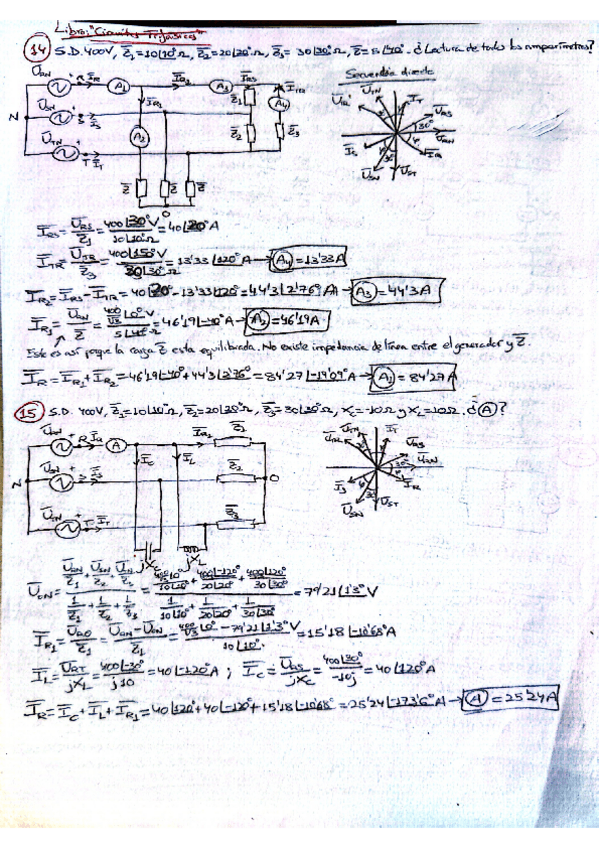 Libro: "Circuitos Trifásicos"
14 S.D. 400V, Z̅1=10∠10°Ω, Z̅2=20∠20°Ω, Z̅3=30∠30°Ω, Z̅=5∠40°. ¿Lectura de todos los amperímetros?
Secuencia directa
U̅RN I̅R A1 I̅R2 A3 I̅RS I̅TR
U̅SN I̅S I̅R1 Z̅1 A4
N
U̅TN T I̅T A2 Z̅2 Z̅3
Z̅ Z̅ Z̅
0
U̅TN I̅T U̅TR U̅RS 30° U̅RN I̅R I̅S U̅SN U̅ST
I̅RS = U̅RS/Z̅1 = 400∠30°V/10∠10°Ω = 40∠20°A
I̅TR = U̅TR/Z̅3 = 400∠150°V/30∠30°Ω = 13'33∠120°A → A4 = 13'33A
I̅R2 = I̅RS - I̅TR = 40∠20° - 13'33∠120° = 44'3∠2'76°A → A3 = 44'3A
I̅R1 = U̅RN/Z̅ = 400/√3∠0°V/5∠40°Ω = 46'19∠-40°A → A2 = 46'19A
Esto es así porque la carga Z̅ esta equilibrada. No existe impedancia de línea entre el generador y Z̅.
I̅R = I̅R1 + I̅R2 = 46'19∠-40° + 44'3∠2'76° = 84'27∠-19'09°A → A1 = 84'27A
15 S.D. 400V, Z̅1=10∠10°Ω, Z̅2=20∠20°Ω, Z̅3=30∠30°Ω, Xc=-10Ω y XL=10Ω. ¿A?
U̅RN R I̅R A I̅R1 Z̅1
I̅C I̅L
U̅SN I̅S Z̅2
N 0
U̅TN T I̅T Z̅3
jXc jXL
U̅TN I̅T U̅TR U̅RS 30° U̅RN I̅R I̅S U̅SN U̅ST
U̅ON = U̅RN/Z̅1 + U̅SN/Z̅2 + U̅TN/Z̅3 / 1/Z̅1 + 1/Z̅2 + 1/Z̅3 = 400/√3∠0°/10∠10° + 400/√3∠-120°/20∠20° + 400/√3∠120°/30∠30° / 1/10∠10° + 1/20∠20° + 1/30∠30° = 79'21∠1'3°V
I̅R1 = U̅RO/Z̅1 = U̅RN - U̅ON/Z̅1 = 400/√3∠0° - 79'21∠1'3°V/10∠10° = 15'18∠-10'68°A
I̅L = U̅RT/jXL = 400∠-30°/j10 = 40∠-120°A ; I̅C = U̅RS/jXc = 400∠30°/-10j = 40∠120°A
I̅R = I̅C + I̅L + I̅R1 = 40∠120° + 40∠-120° + 15'18∠-10'68° = 25'24∠-173'6°A → A = 25'24A